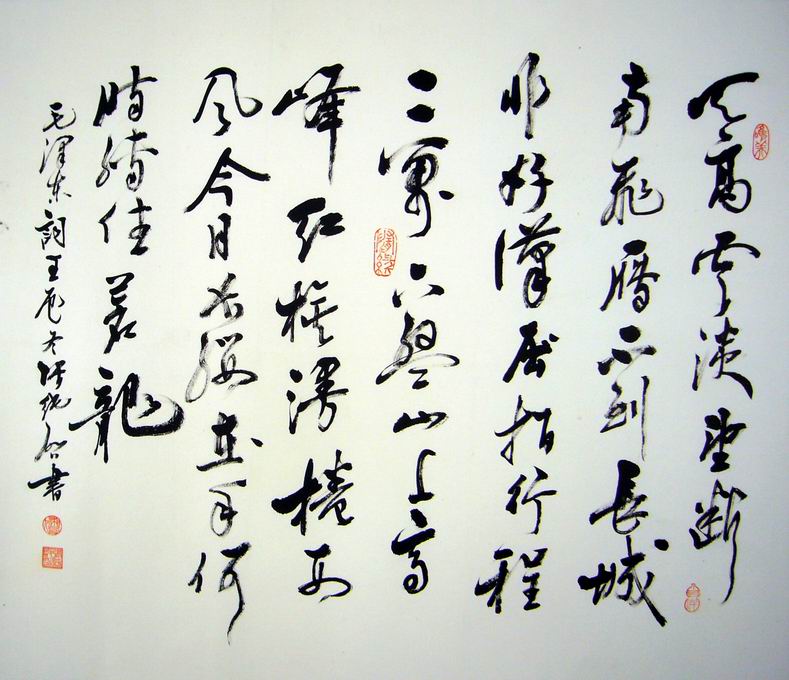 天高雲淡望斷
南飛雁不到長城
非好漢屈指行程
二萬六盤山上高
峰紅旗漫捲西
風今日長纓在手何
時縛住蒼龍
毛澤东詞壬辰冬書